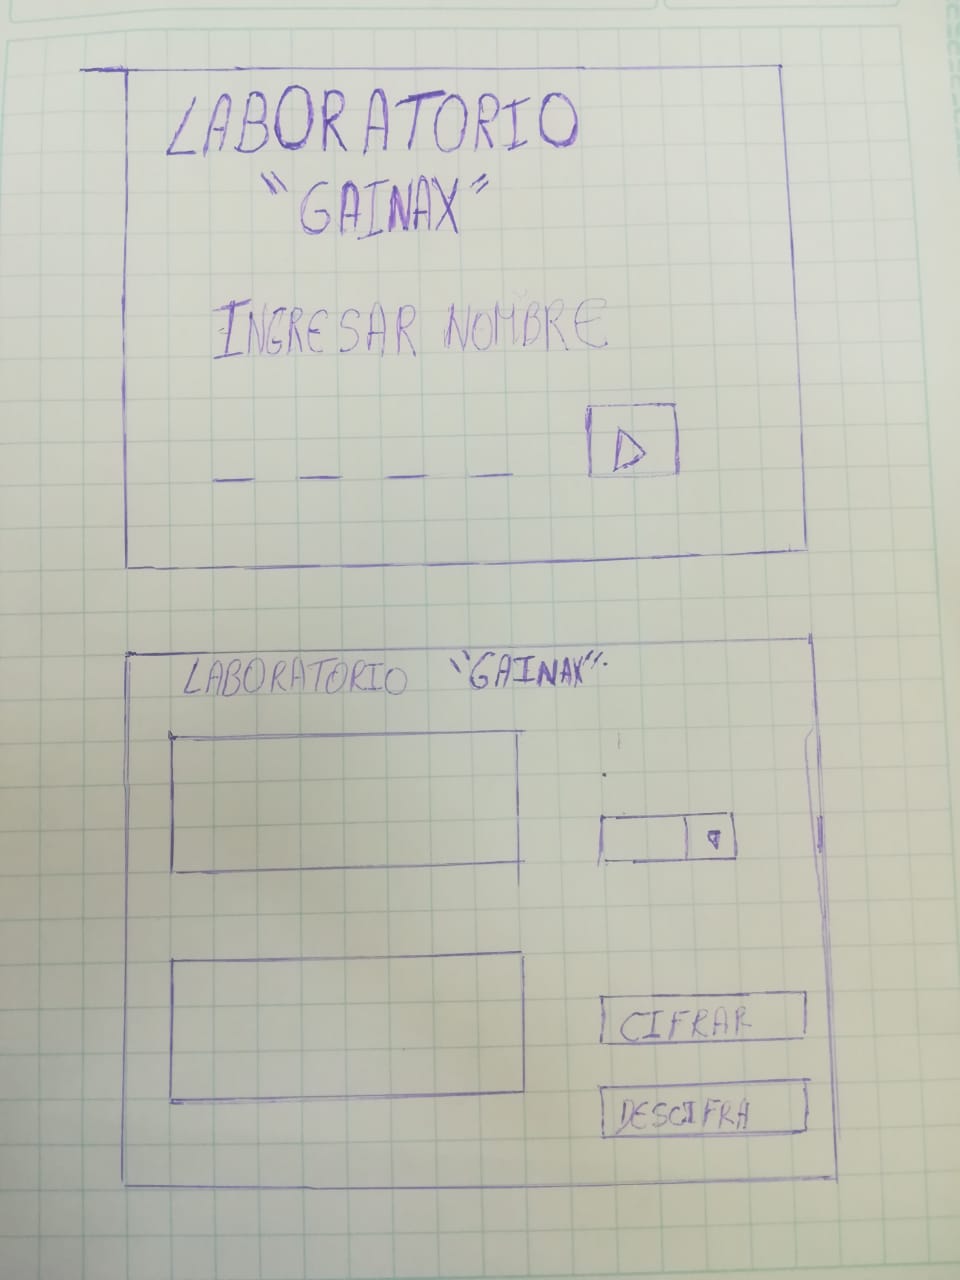 LABORATORIO
"GAINAX"
INGRESAR NOMBRE
LABORATORIO "GAINAX".
CIFRAR
DESCIFRA